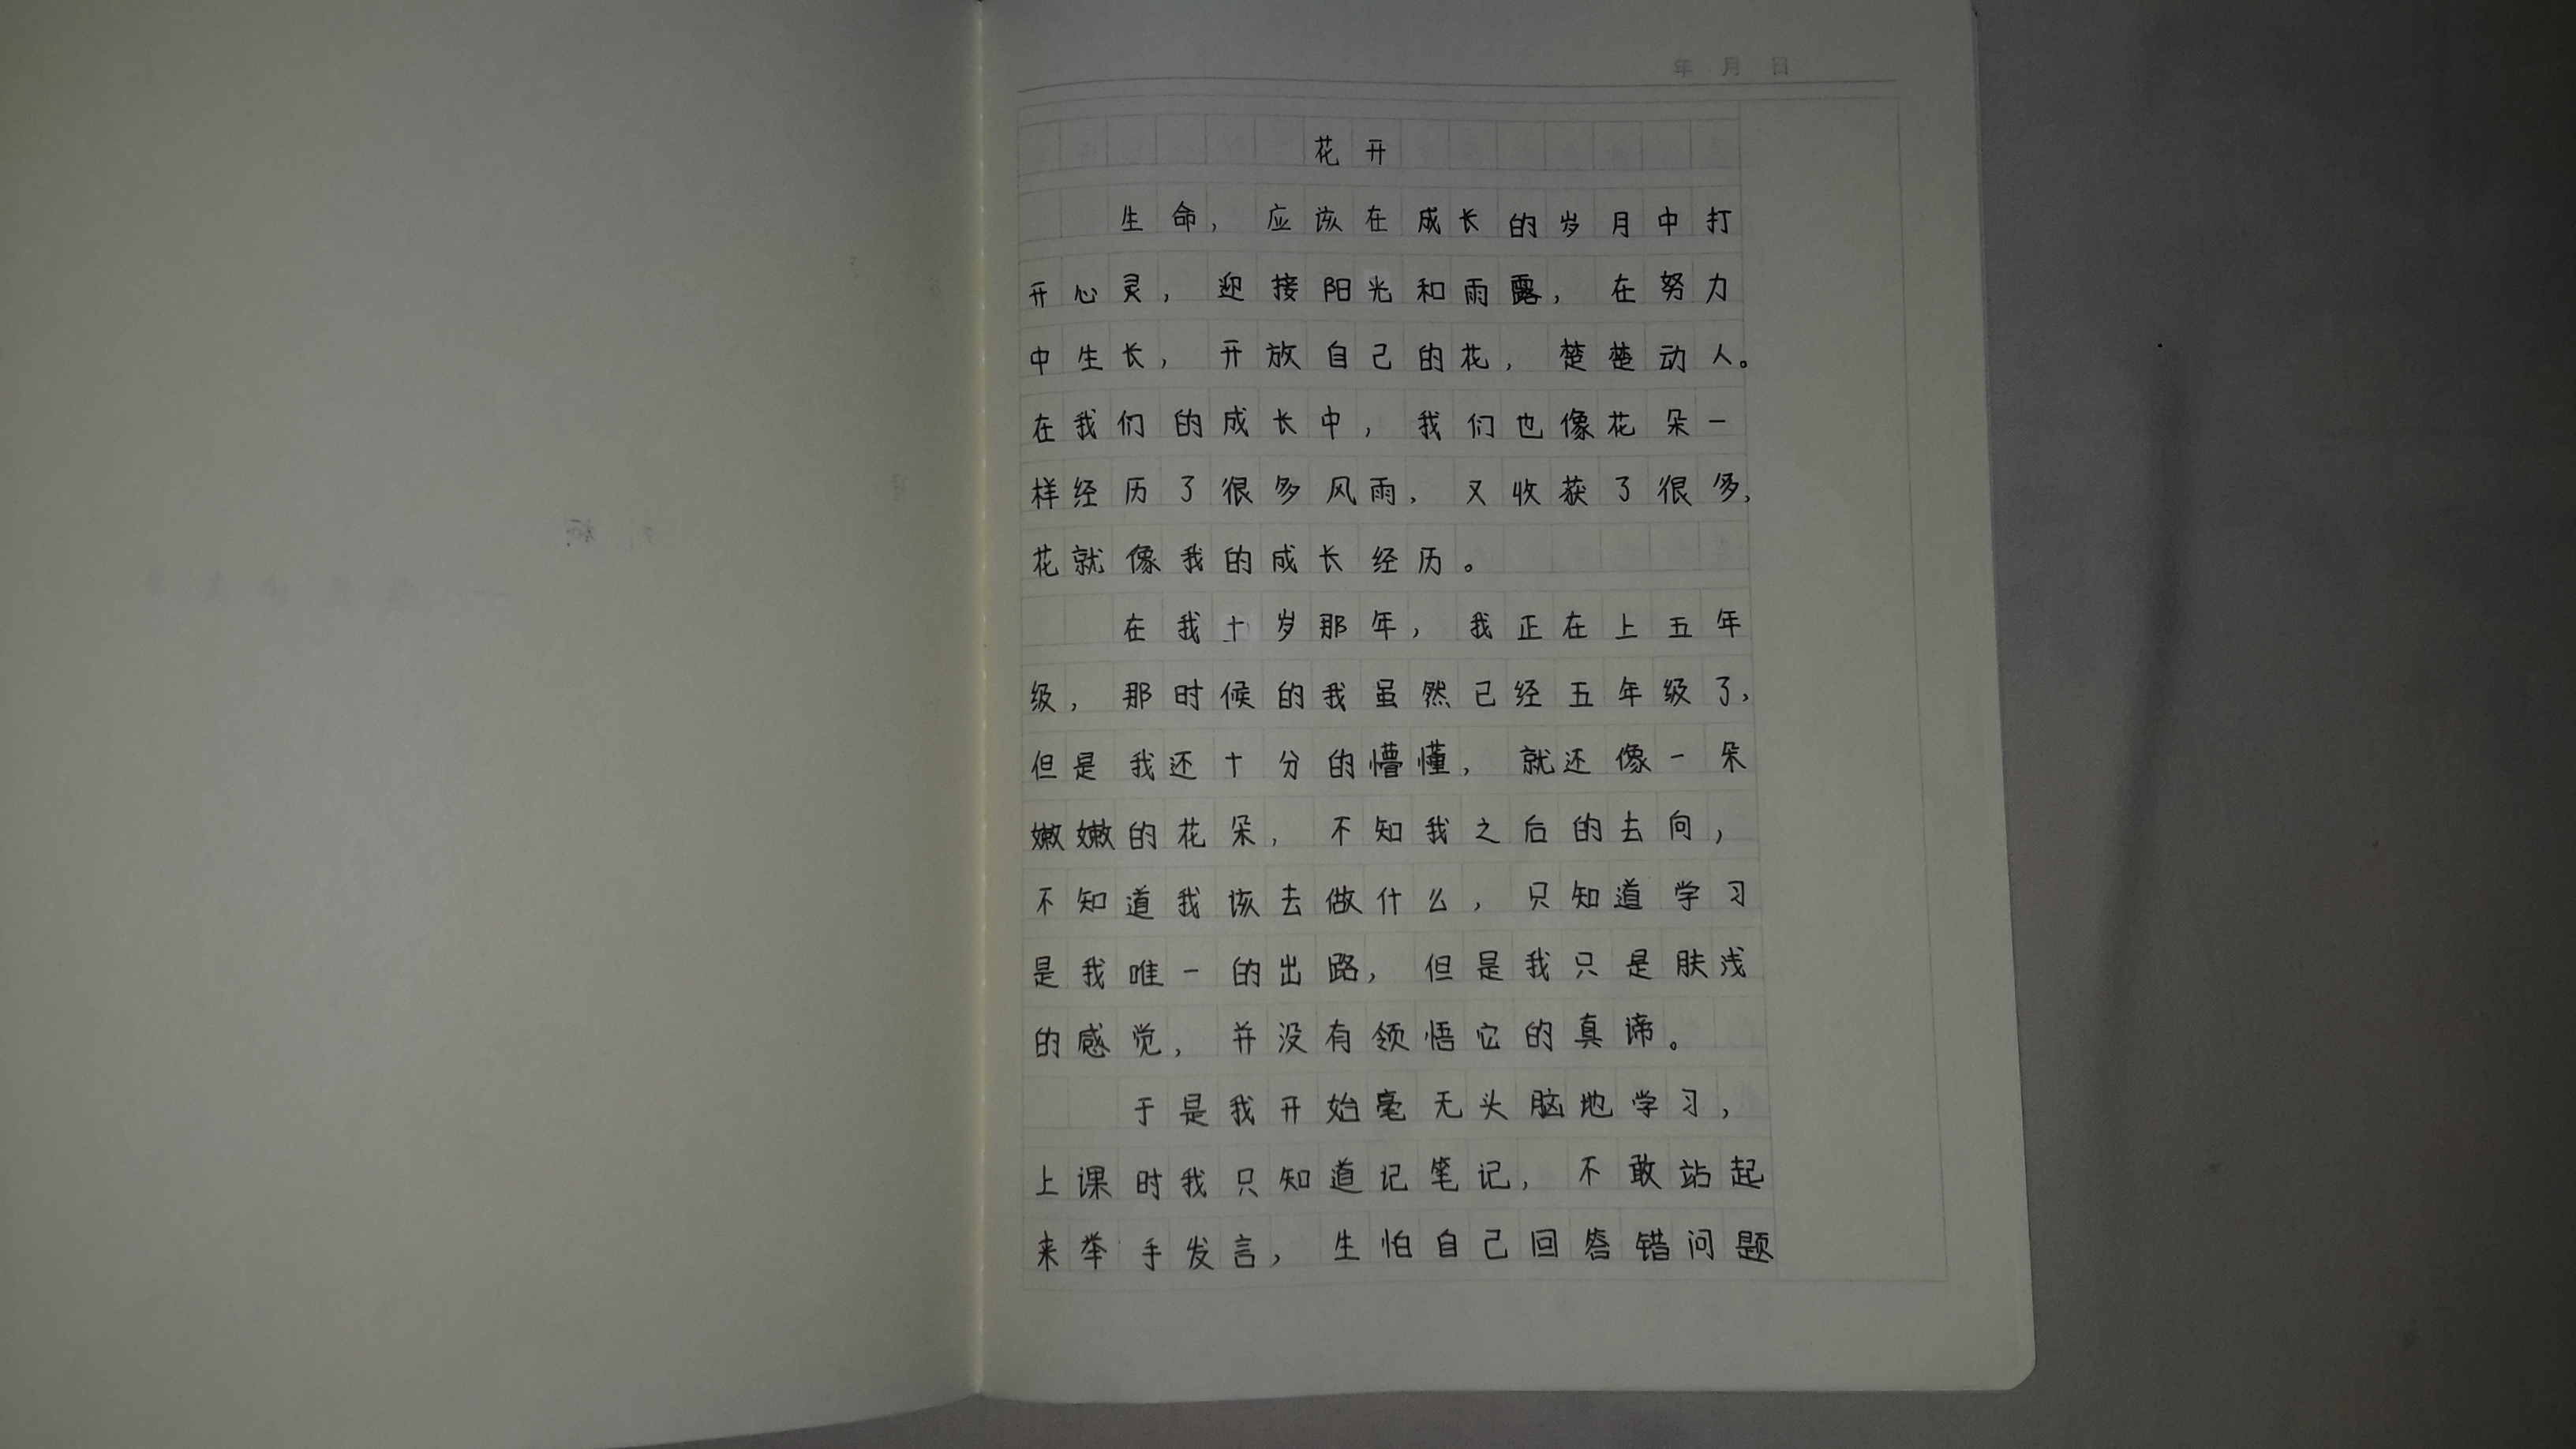 年 月 日
花开
生命，应该在成长的岁月中打
开心灵，迎接阳光和雨露，在努力
中生长，开放自己的花，楚楚动人。
在我们的成长中，我们也像花朵一
样经历了很多风雨，又收获了很多，
花就像我的成长经历。
在我十岁那年，我正在上五年
级，那时候的我虽然已经五年级了，
但是我还十分的懵懂，就还像一朵
嫩嫩的花朵，不知我之后的去向，
不知道我该去做什么，只知道学习
是我唯一的出路，但是我只是肤浅
的感觉，并没有领悟它的真谛。
于是我开始毫无头脑地学习，
上课时我只知道记笔记，不敢站起
来举手发言，生怕自己回答错问题